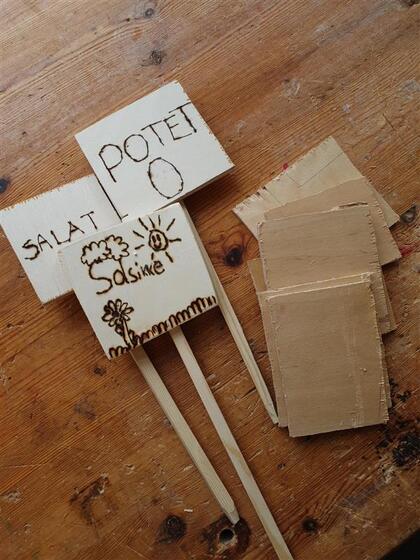 POTET
SALAT
Solsikke